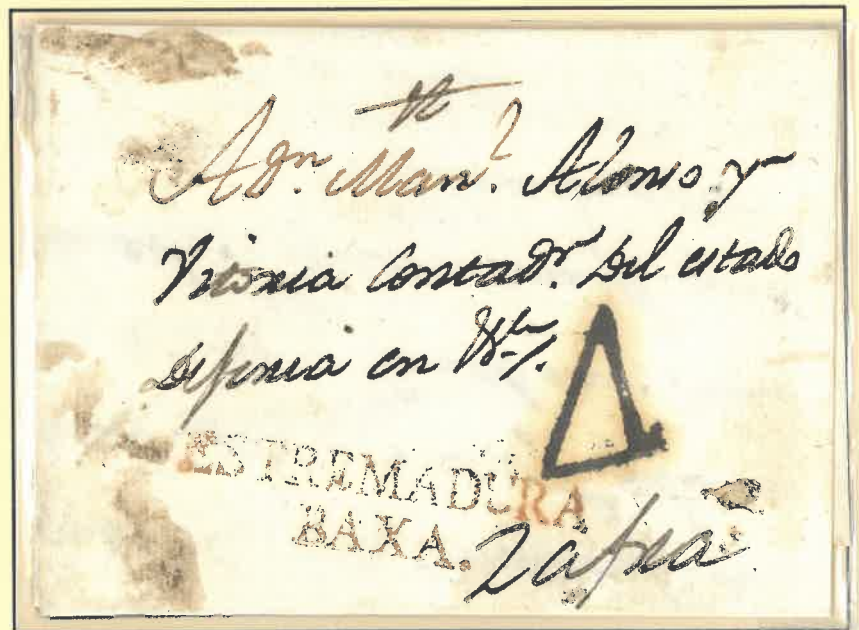 A Dn. Manl. Alonso y
Vitoria Contadr. del estado
de feria en
ESTREMADURA
BAXA.
Zafra